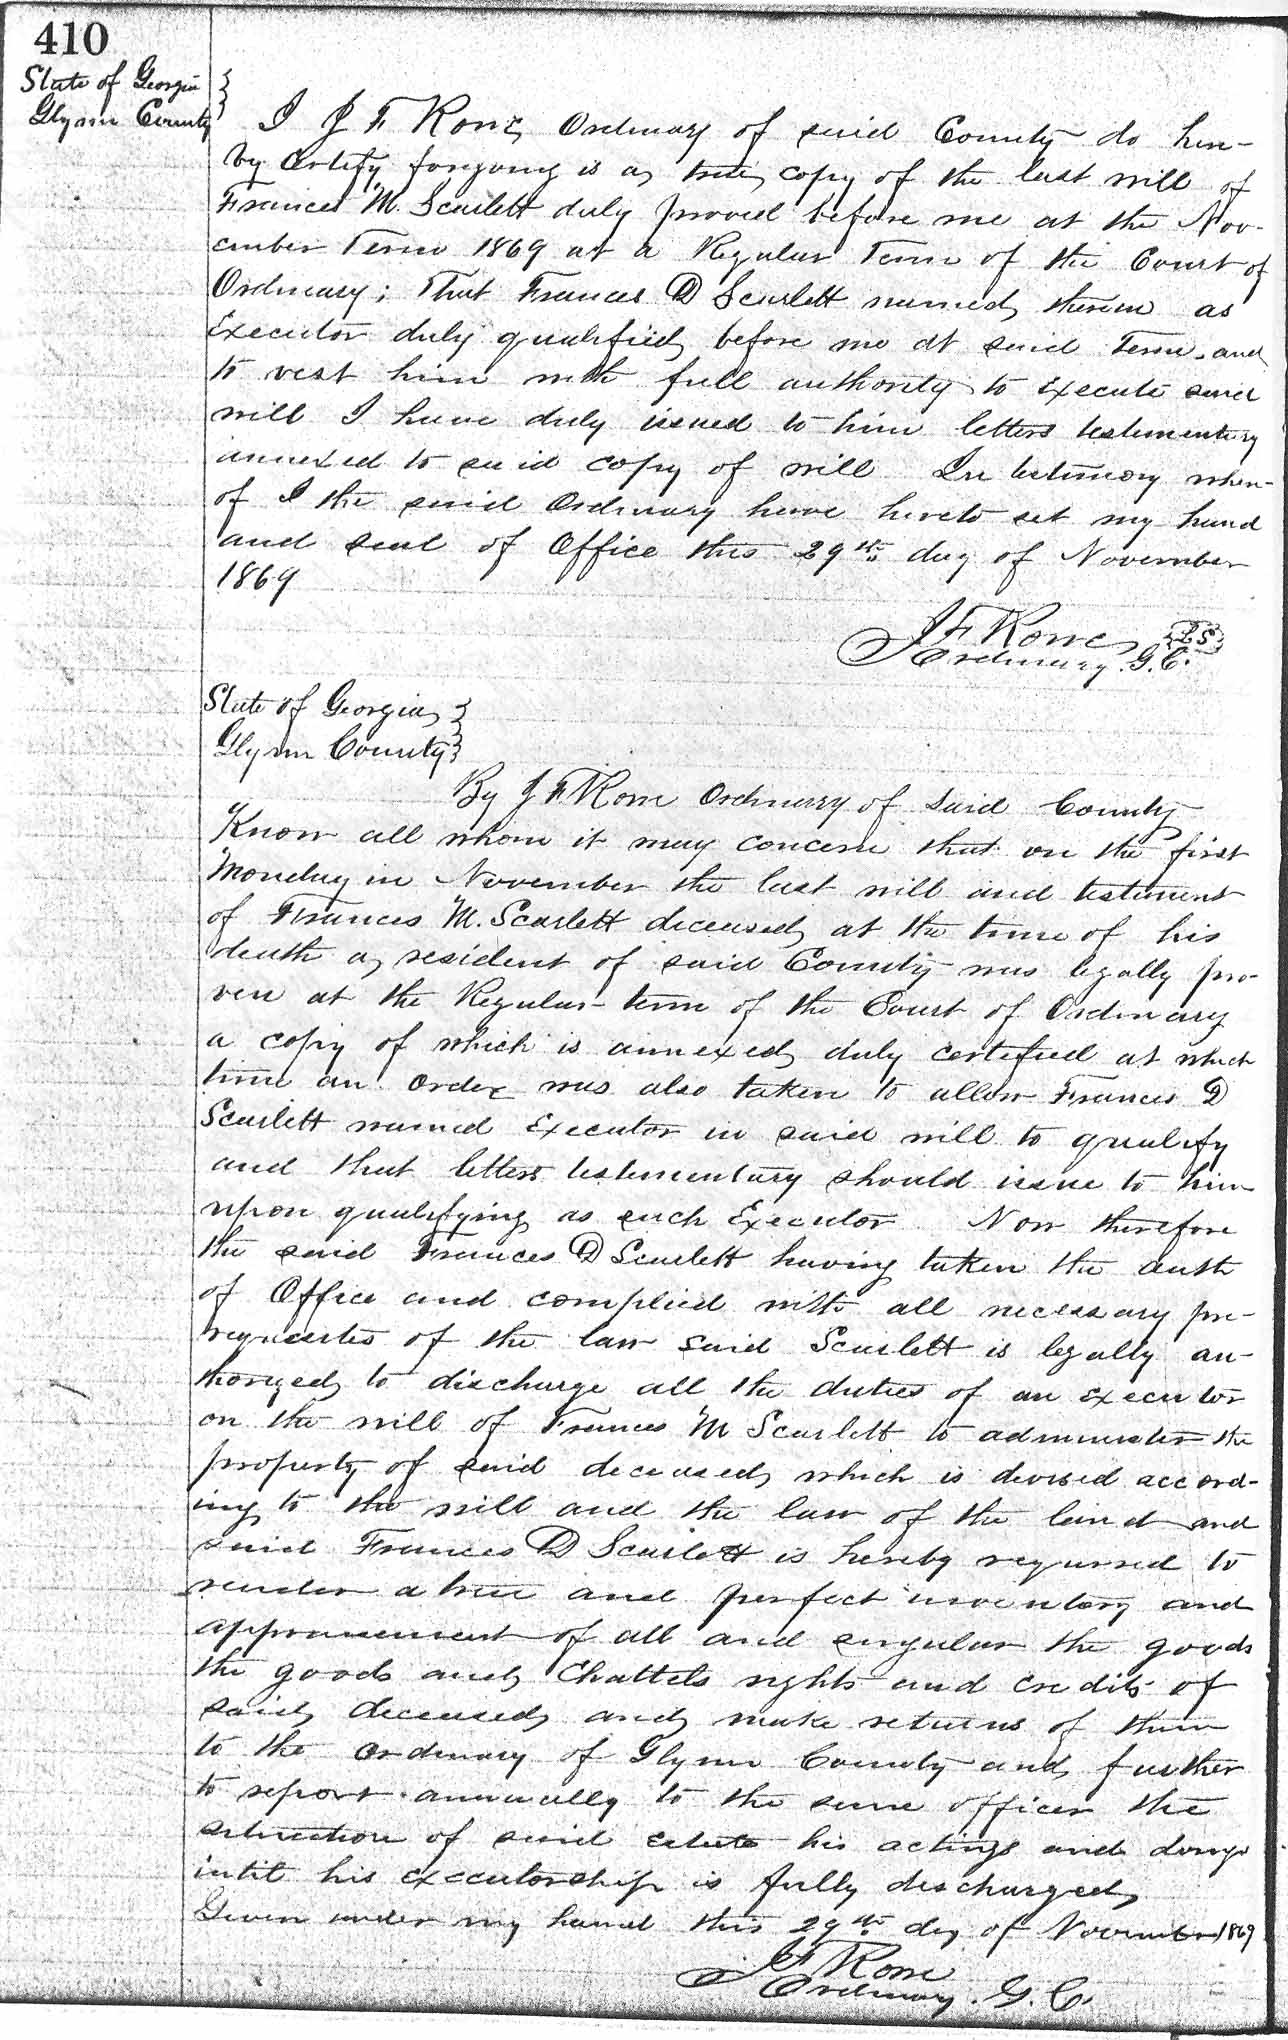 410
State of Georgia
Glynn County
I J F Rowe Ordinary of said County do here-
by certify foregoing is a true copy of the last will of
Frances M. Scarlett duly proved before me at the Nov-
ember Term 1869 at a Regular Term of the Court of
Ordinary; That Frances D Scarlett named therein as
Executor duly qualified before me at said Term and
to vest him with full authority to execute said
will I have duly issued to him letters testementary
annexed to said copy of will In testimony where-
of I the said Ordinary have hereto set my hand
and seal of Office this 29th day of November
1869
J F Rowe LS
Ordinary G.C.
State of Georgia
Glynn County
By J F Rowe Ordinary of Said County
Know all whom it may concern that on the first
Monday in November the last will and testament
of Frances M. Scarlett deceased at the time of his
death a resident of said County was legally pro-
ven at the Regular term of the Court of Ordinary
a copy of which is annexed duly certified at which
time an order was also taken to allow Frances D
Scarlett named Executor in said will to qualify
and that letters testementary should issue to him
upon qualifying as such Executor Now therefore
the said Frances D Scarlett having taken the oath
of Office and complied with all necessary pre-
requisites of the law said Scarlett is legally au-
thorized to discharge all the duties of an executor
on the will of Frances M Scarlett to administer the
property of said deceased which is devised accord-
ing to the will and the law of the land and
said Frances D Scarlett is hereby required to
render a true and perfect inventory and
appraisement of all and singular the goods
the goods and Chattels rights and credits of
said deceased and make returns of them
to the ordinary of Glynn County and further
to report annually to the same officer the
situation of said estate his actings and doings
until his executorship is fully discharged
Given under my hand this 29th day of November 1869
J F Rowe
Ordinary. G. C.